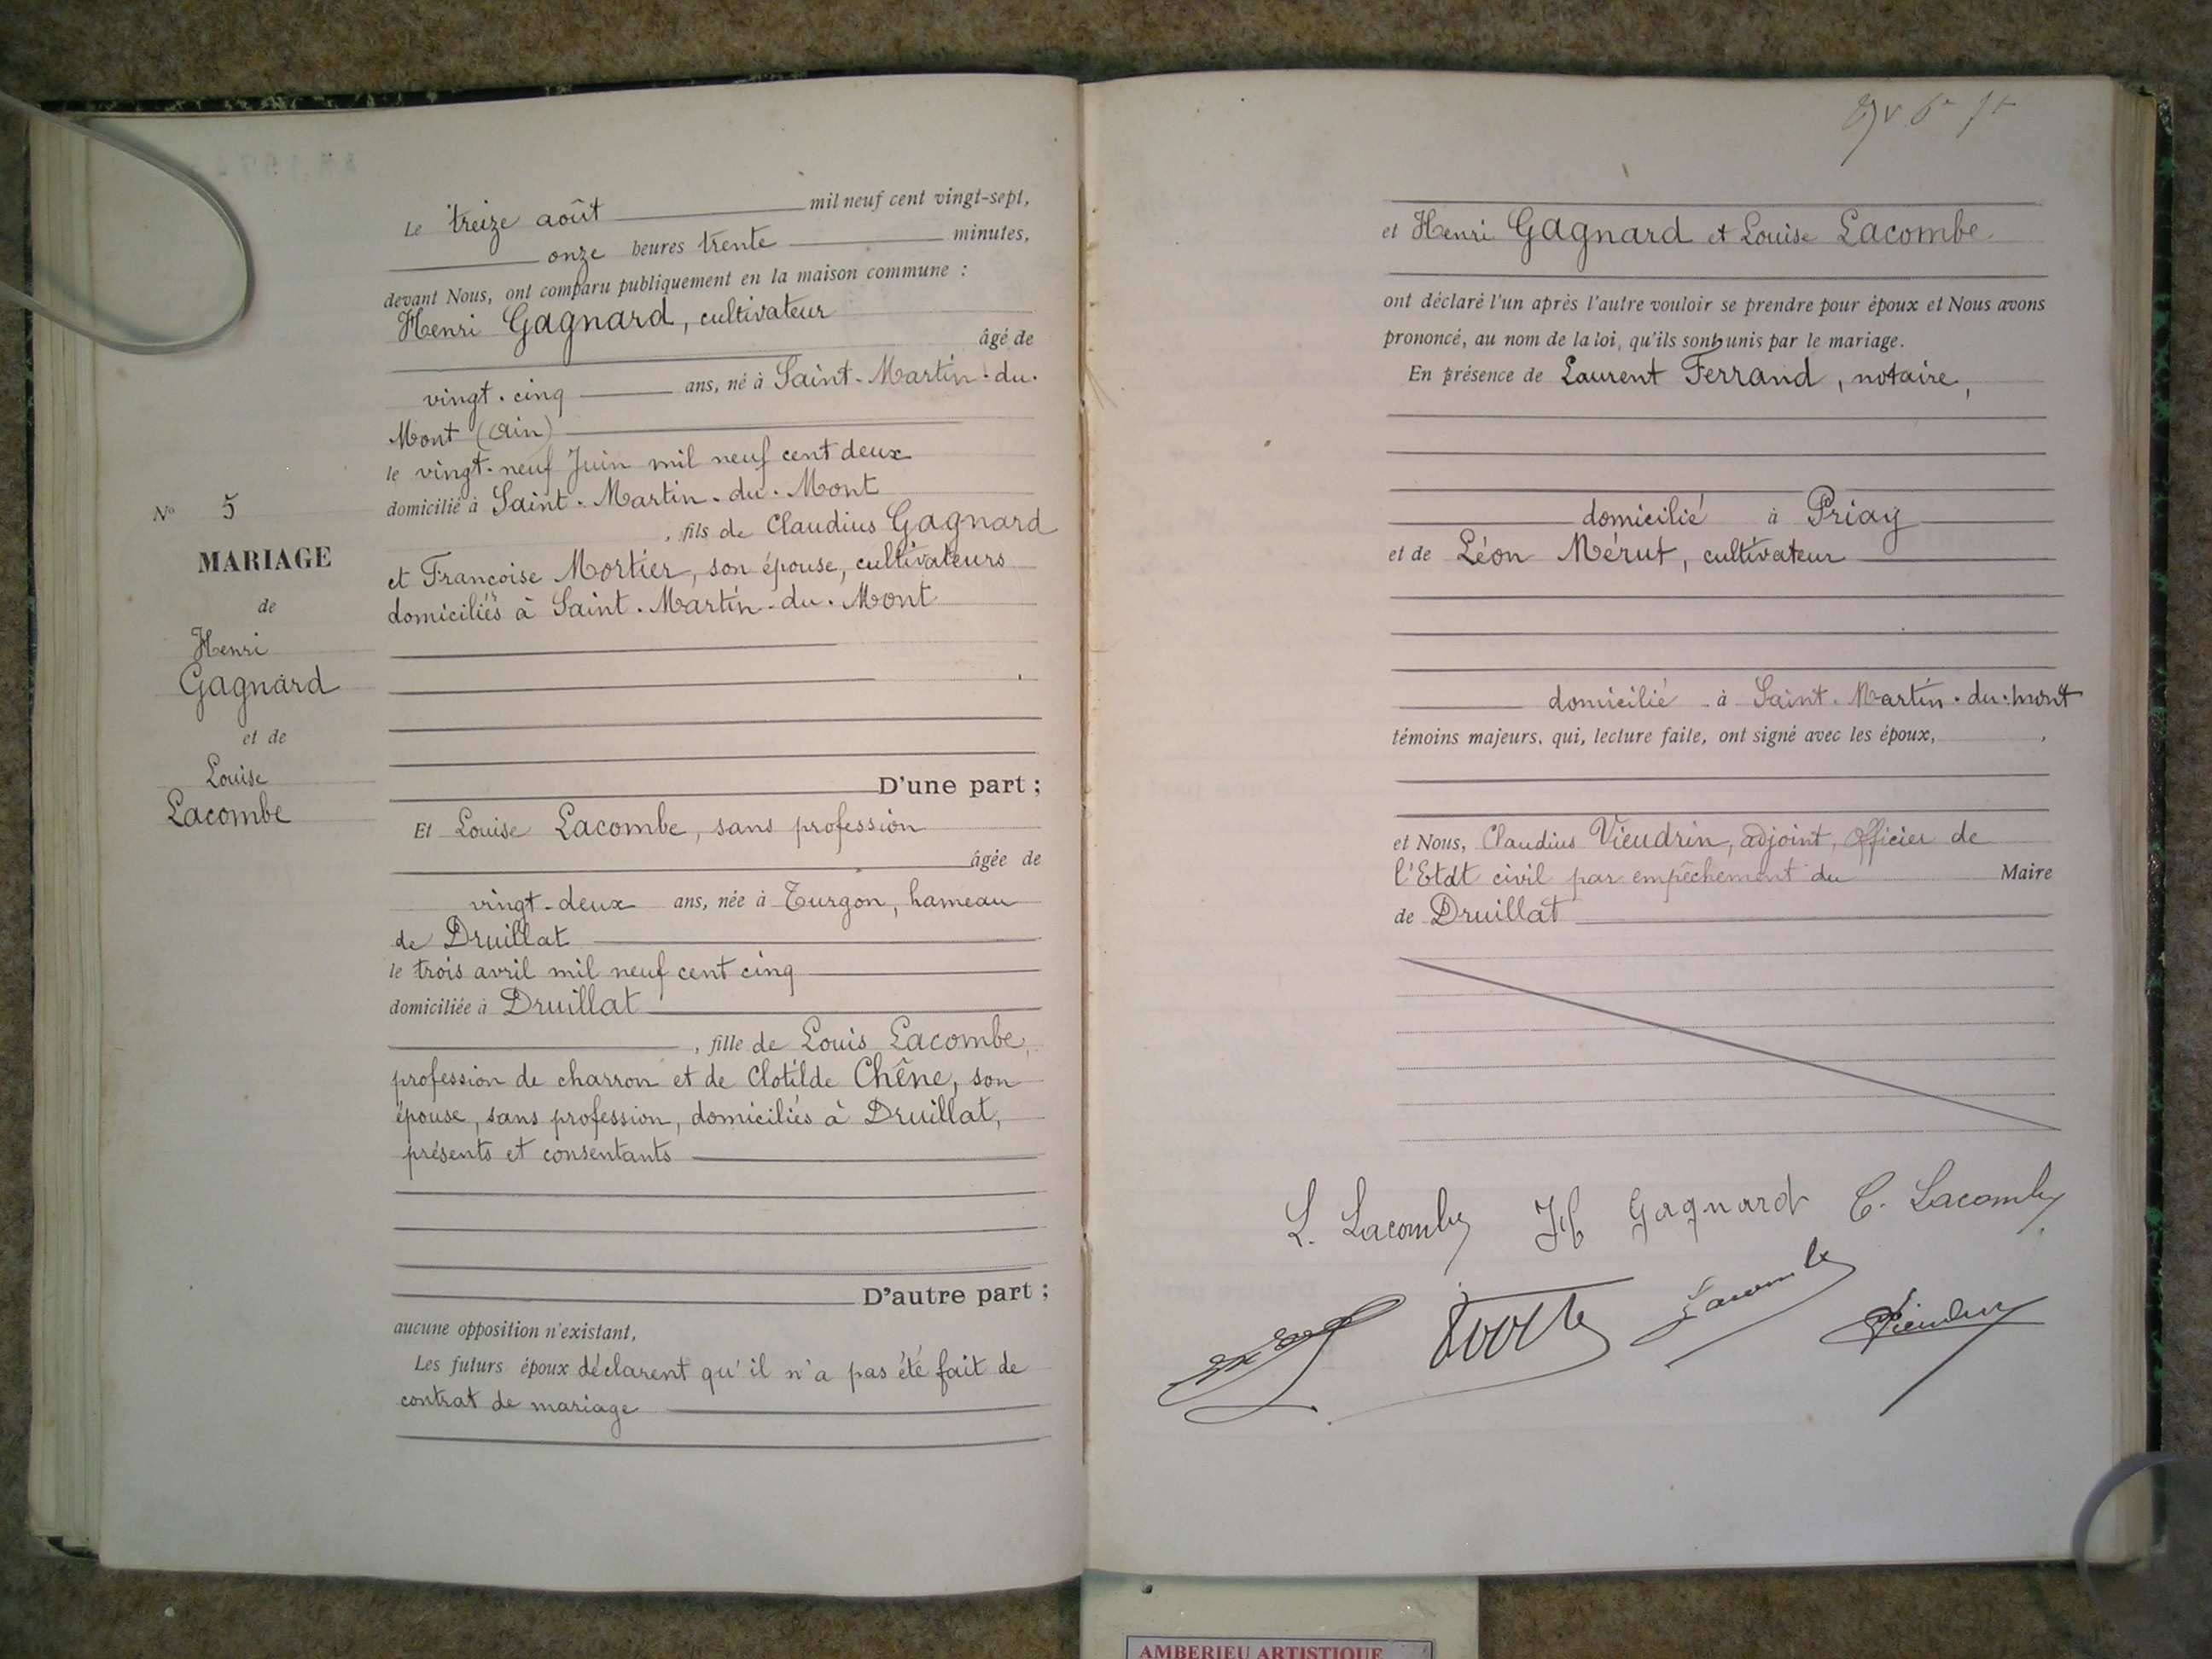 Le treize août mil neuf cent vingt-sept,
onze heures trente minutes,
devant Nous, ont comparu publiquement en la maison commune :
Henri Gagnard, cultivateur
âgé de
vingt-cinq ans, né à Saint-Martin-du-
Mont (Ain)
le vingt-neuf Juin mil neuf cent deux
domicilié à Saint-Martin-du-Mont
, fils de Claudius Gagnard
et Françoise Mortier, son épouse, cultivateurs
domiciliés à Saint-Martin-du-Mont
No 5
MARIAGE
de
Henri
Gagnard
et de
Louise
Lacombe
D'une part ;
Et Louise Lacombe, sans profession
âgée de
vingt-deux ans, née à Turgon, hameau
de Druillat
le trois avril mil neuf cent cinq
domiciliée à Druillat
, fille de Louis Lacombe,
profession de charron et de Clotilde Chêne, son
épouse, sans profession, domiciliés à Druillat,
présents et consentants
D'autre part ;
aucune opposition n'existant,
Les futurs époux déclarent qu'il n'a pas été fait de
contrat de mariage
et Henri Gagnard et Louise Lacombe
ont déclaré l'un après l'autre vouloir se prendre pour époux et Nous avons
prononcé, au nom de la loi, qu'ils sont unis par le mariage.
En présence de Laurent Ferrand, notaire,
domicilié à Priay
et de Léon Mérut, cultivateur
domicilié à Saint-Martin-du-mont
témoins majeurs, qui, lecture faite, ont signé avec les époux,
et Nous, Claudius Vieudrin, adjoint, Officier de
l'Etat civil par empêchement du Maire
de Druillat
L. Lacombe H Gagnard C. Lacombe
Lacombe Vieudrin
AMBERIEU ARTISTIQUE